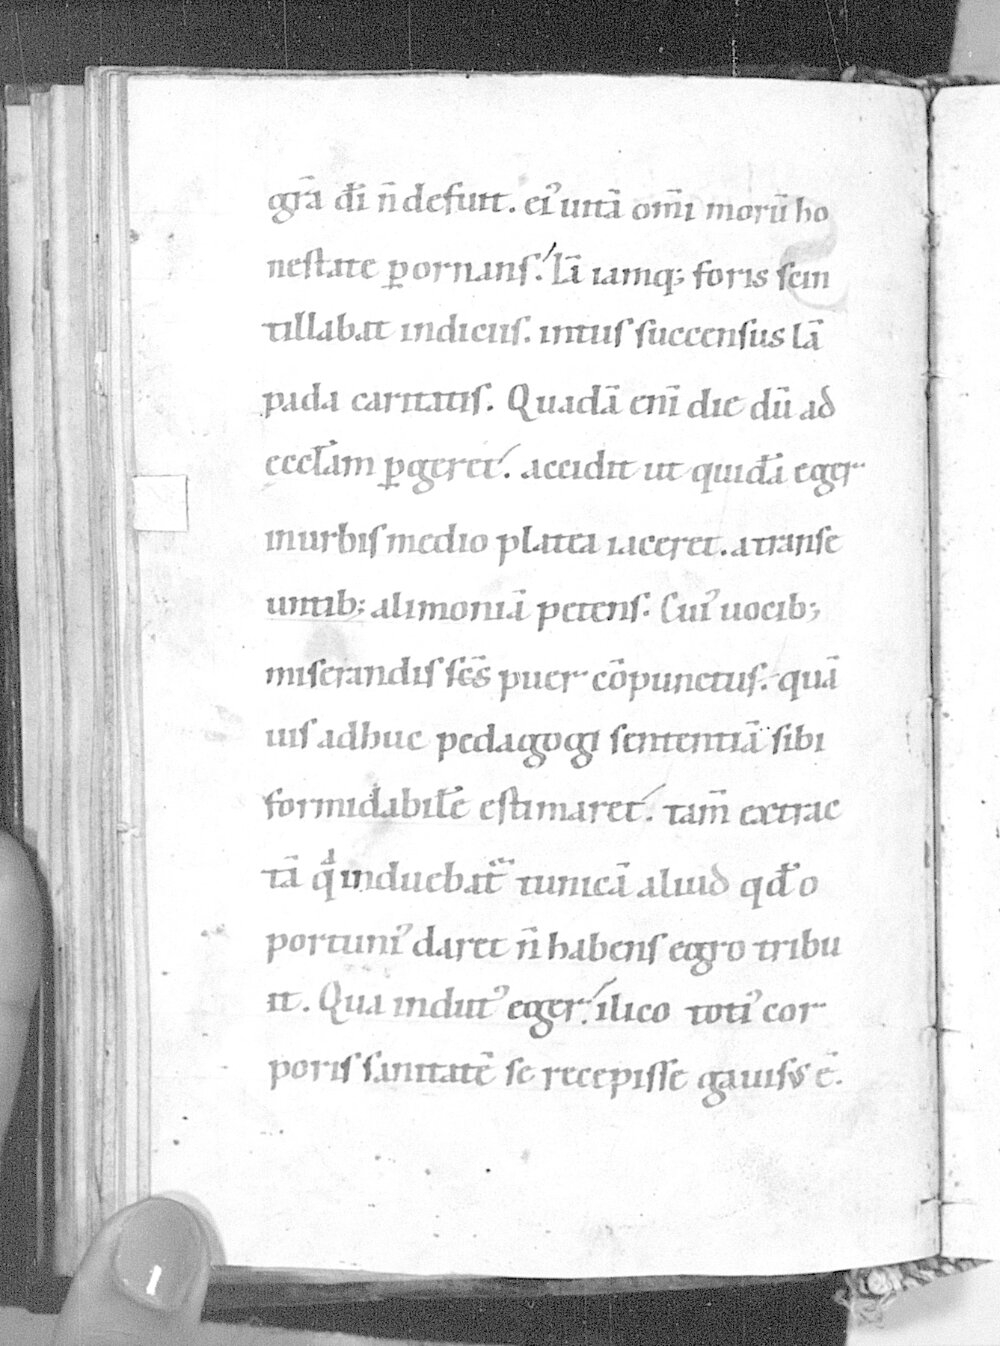 gr̄a d̄i n̄ defuit. ei᾿ uitā om̄i morū ho
nestate ꝑornans. Lā iamq; foris scin
tillabat indiciis. intus succensus lā
pada caritatis. Quadā eni᷄ die dū ad
eccl̄am ꝑgeret. accidit ut quidā eger
in urbis medio platea iaceret. a transe
untib; alimoniā petens. Cui᾿ uocib;
miserandis sc̄s puer cōpunctus. quā
uis adhuc pedagogi sententiā sibi
formidabilē estimaret. tam̄ extrac
tā q̍ induebat᷑ tunicā aliud qđ o
portuni᾿ daret n̄ habens egro tribu
it. Qua indut᾿ eger. ilico toti᾿ cor
poris sanitatē se recepisse gauisus ē.